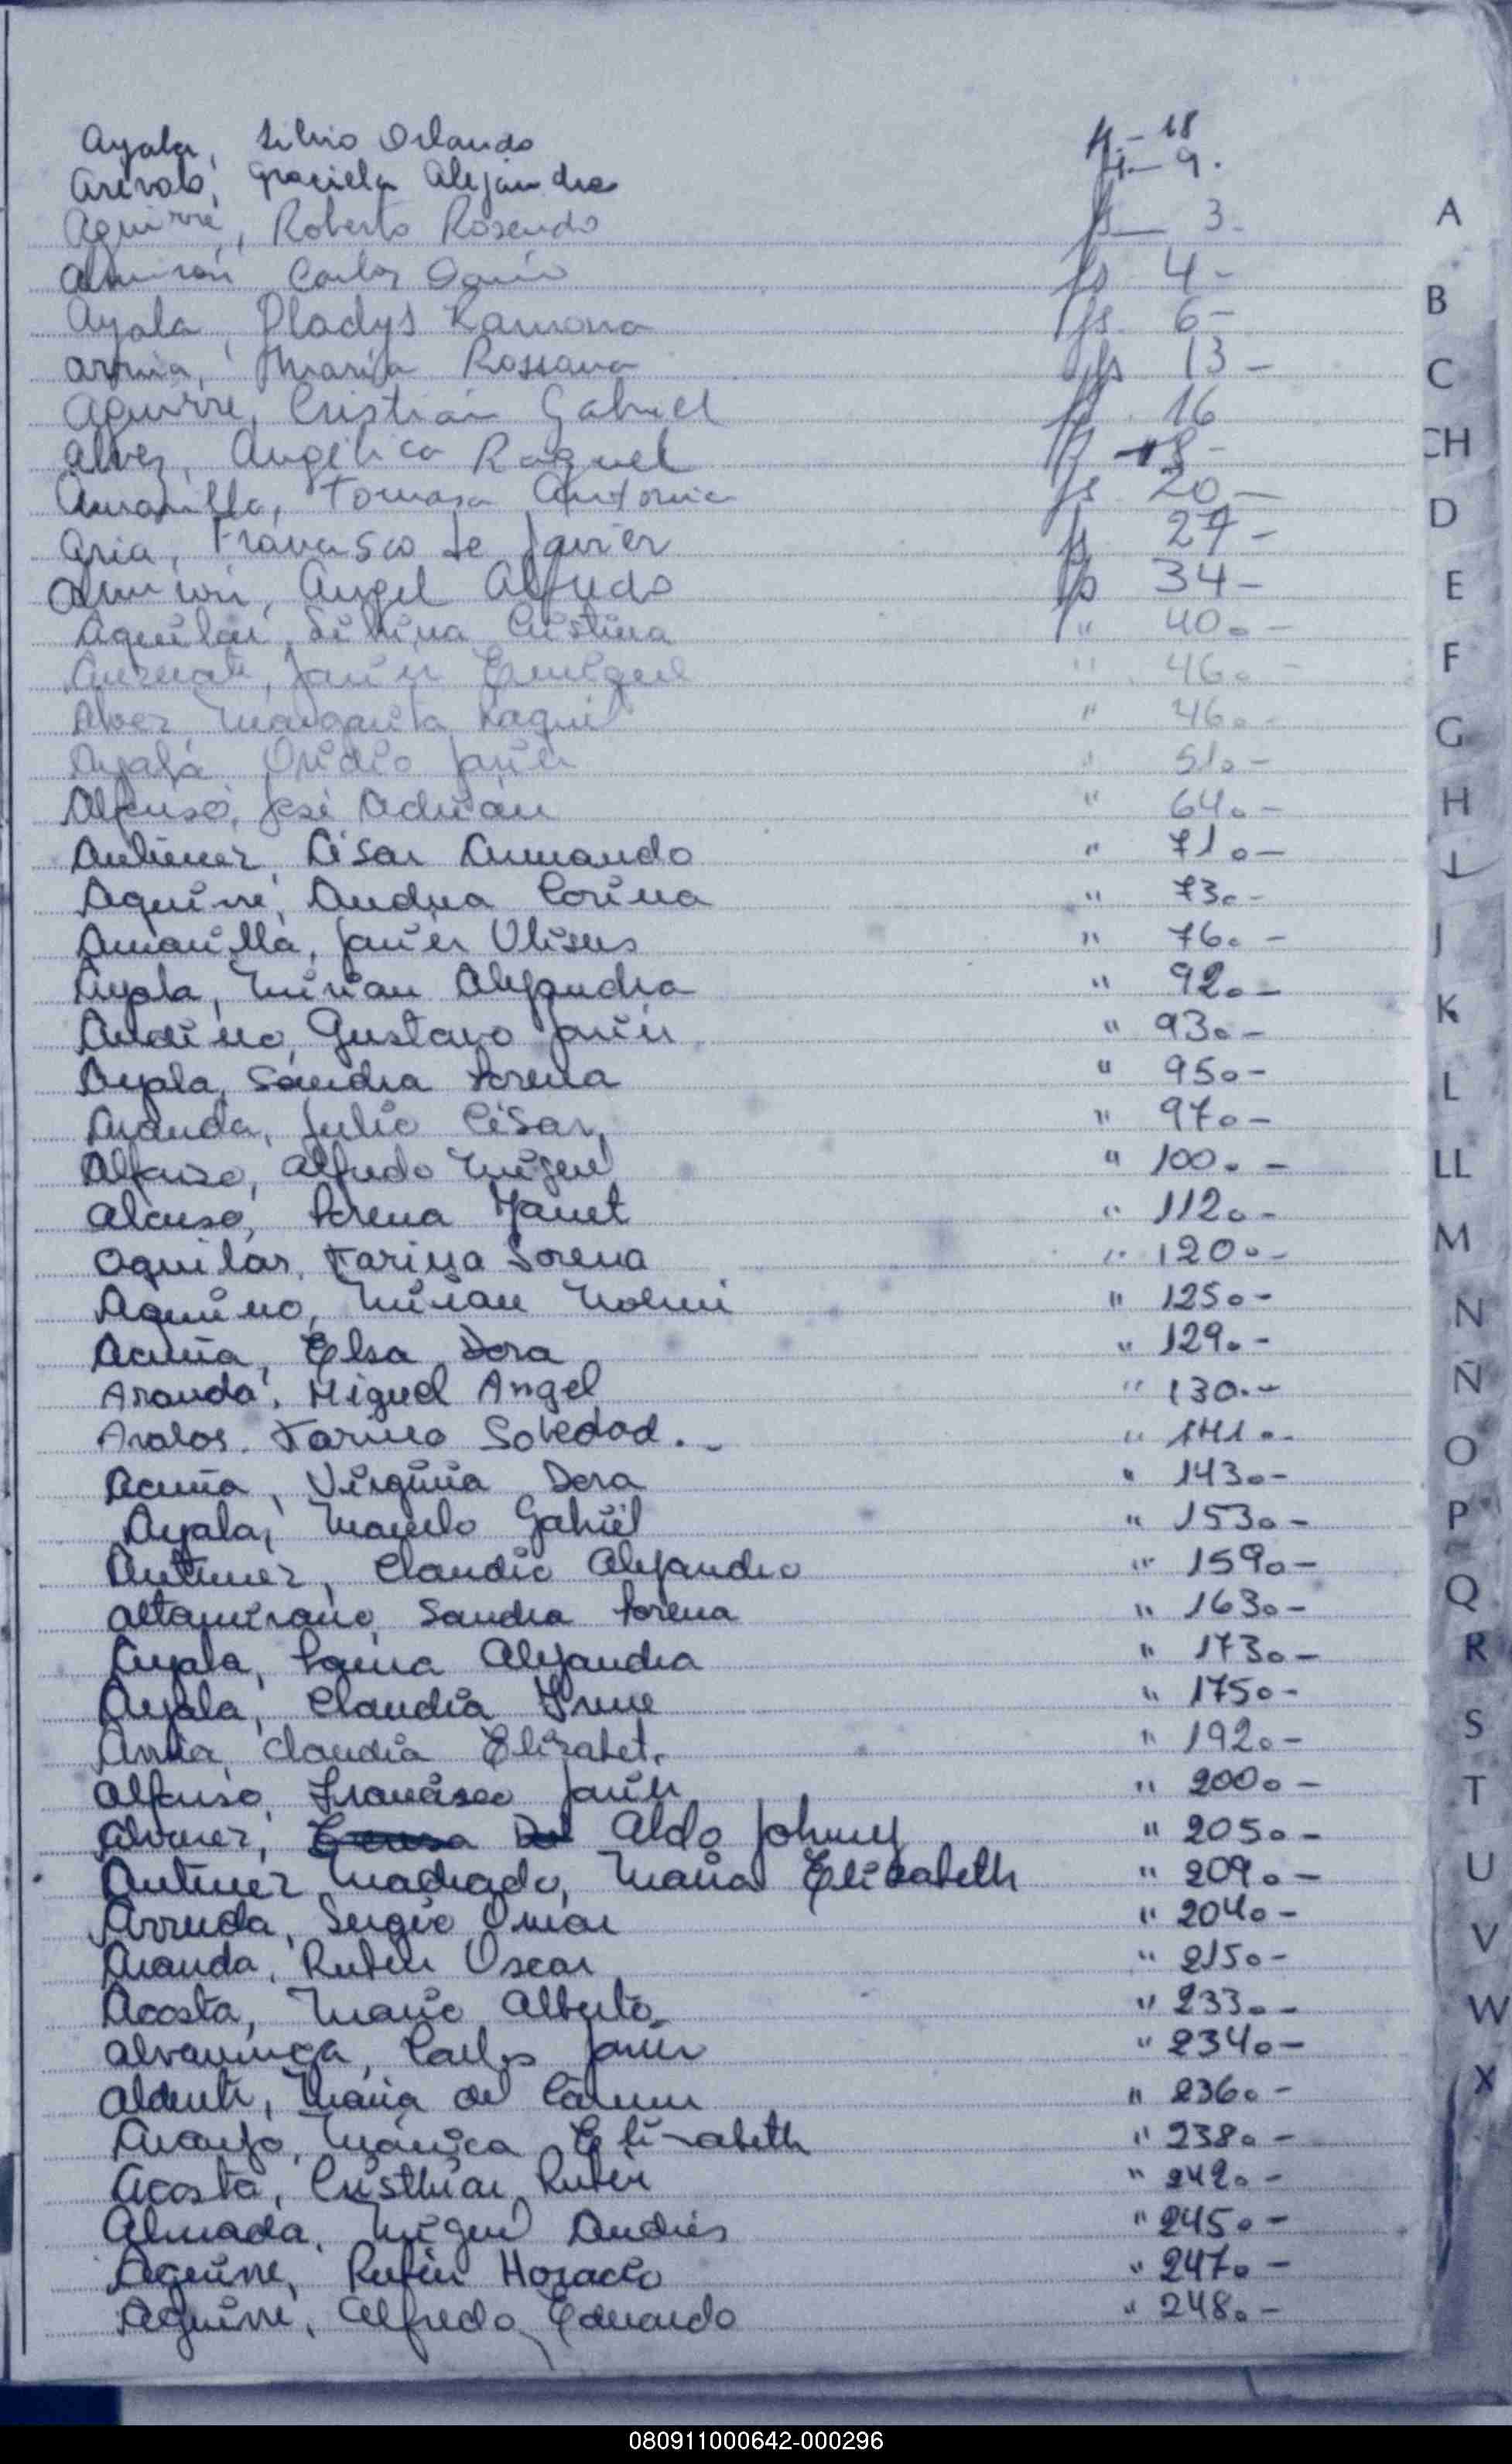 Ayala, Silvio Orlando fs.- 18
Arevalo, Graciela Alejandra fs.- 9.
Aguirre, Roberto Rosendo fs 3.
Almirón Carlos Darío fs 4-
Ayala, Gladys Ramona fs. 6-
Arrua, María Rossana fs 13-
Aguirre, Cristian Gabriel fs. 16
Alvez, Angélica Raquel fs 8-
Amarilla, Tomasa Antonia fs 20-
Aria, Francisco Javier fs 27-
Almirón, Angel Alfredo fs 34-
Aguilar, Silvina Cristina " 40.-
Javier Ezequiel " 46.-
Alvez Margarita Raquel " 46.-
Ayala Ovidio Javier " 51.-
Alfonso, José Adrián " 64.-
Antúnez, César Armando " 71.-
Aguirre, Andrea Corina " 73.-
Amarilla, Javier Ulises " 76.-
Ayala, Mirian Alejandra " 92.-
Andino, Gustavo Javier " 93.-
Ayala, Sandra Lorena " 95.-
Aranda, Julio César, " 97.-
Alfonso, Alfredo Miguel " 100.-
Alonso, Lorena Yanet " 112.-
Aguilar, Karina Lorena " 120.-
Aquino, Mirian Noemi " 125.-
Acuña, Elsa Dora " 129.-
Aranda, Miguel Angel " 130.-
Avalos. Karina Soledad.- " 141.-
Acuña, Virginia Dora " 143.-
Ayala, Marcelo Gabriel " 153.-
Antunez, Claudio Alejandro " 159.-
Altamirano, Sandra Lorena " 163.-
Ayala, Laura Alejandra " 173.-
Ayala, Claudia Irene " 175.-
Arrua, Claudia Elizabet. " 192.-
Alfonso, Francisco Javier " 200.-
Alvarez, Aldo Johnny " 205.-
Antunez Machado, María Elizabeth " 209.-
Arruda, Sergio Omar " 204.-
Aranda, Rubén Oscar " 215.-
Acosta, Mario Alberto. " 233.-
Alvarenga, Carlos Javier " 234.-
María del Carmen " 236.-
Araujo, Mónica Elizabeth " 238.-
Acosta, Cristhian Rubén " 242.-
Almada, Miguel Andrés " 245.-
Aguirre, Rubén Horacio " 247.-
Aguirre, Alfredo Eduardo " 248.-
A
B
C
CH
D
E
F
G
H
I
J
K
L
LL
M
N
Ñ
O
P
Q
R
S
T
U
V
W
X
080911000642-000296